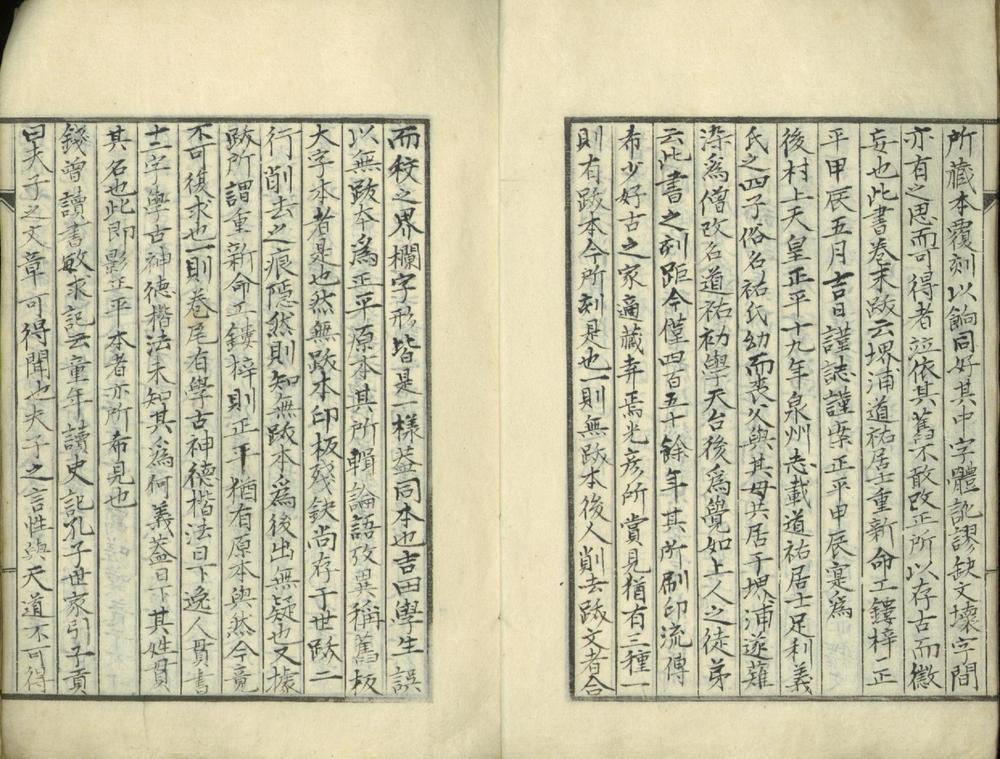 所藏本覆刻以餉同好其中字體訛謬缺文壞字間
亦有之思而可得者並依其舊不敢改正所以存古而徵
妄也此書卷末跋云堺浦道祐居士重新命工鏤梓正
平甲辰五月吉日謹誌謹案正平甲辰寔爲
後村上天皇正平十九年泉州志載道祐居士足利義
氏之四子俗名祐氏幼而喪父與其母共居于堺浦遂薙
染爲僧改名道祐初學天台後爲覺如上人之徒弟
云此書之刻距今僅四百五十餘年其所刷印流傳
希少好古之家適藏弆焉光彥所賞見猶有三種一
則有跋本今所刻是也一則無跋本後人削去跋文者合
而挍之界欄字形皆是一樣蓋同本也吉田學生誤
以無跋本爲正平原本其所輯論語攷異稱舊板
大字本者是也然無跋本印板殘缺尚存于世跋二
行削去之痕隱然則知無跋本爲後出無疑也又據
跋所謂重新命工鏤梓則正平猶有原本與然今竟
不可復求也一則卷尾有學古神德楷法日下逸人貫書
十二字學古神德楷法未知其爲何義蓋日下其姓貫
其名也此即影正平本者亦所希見也
錢曾讀書敏求記云童年讀史記孔子世家引子貢
曰夫子之文章可得聞也夫子之言性與天道不可得